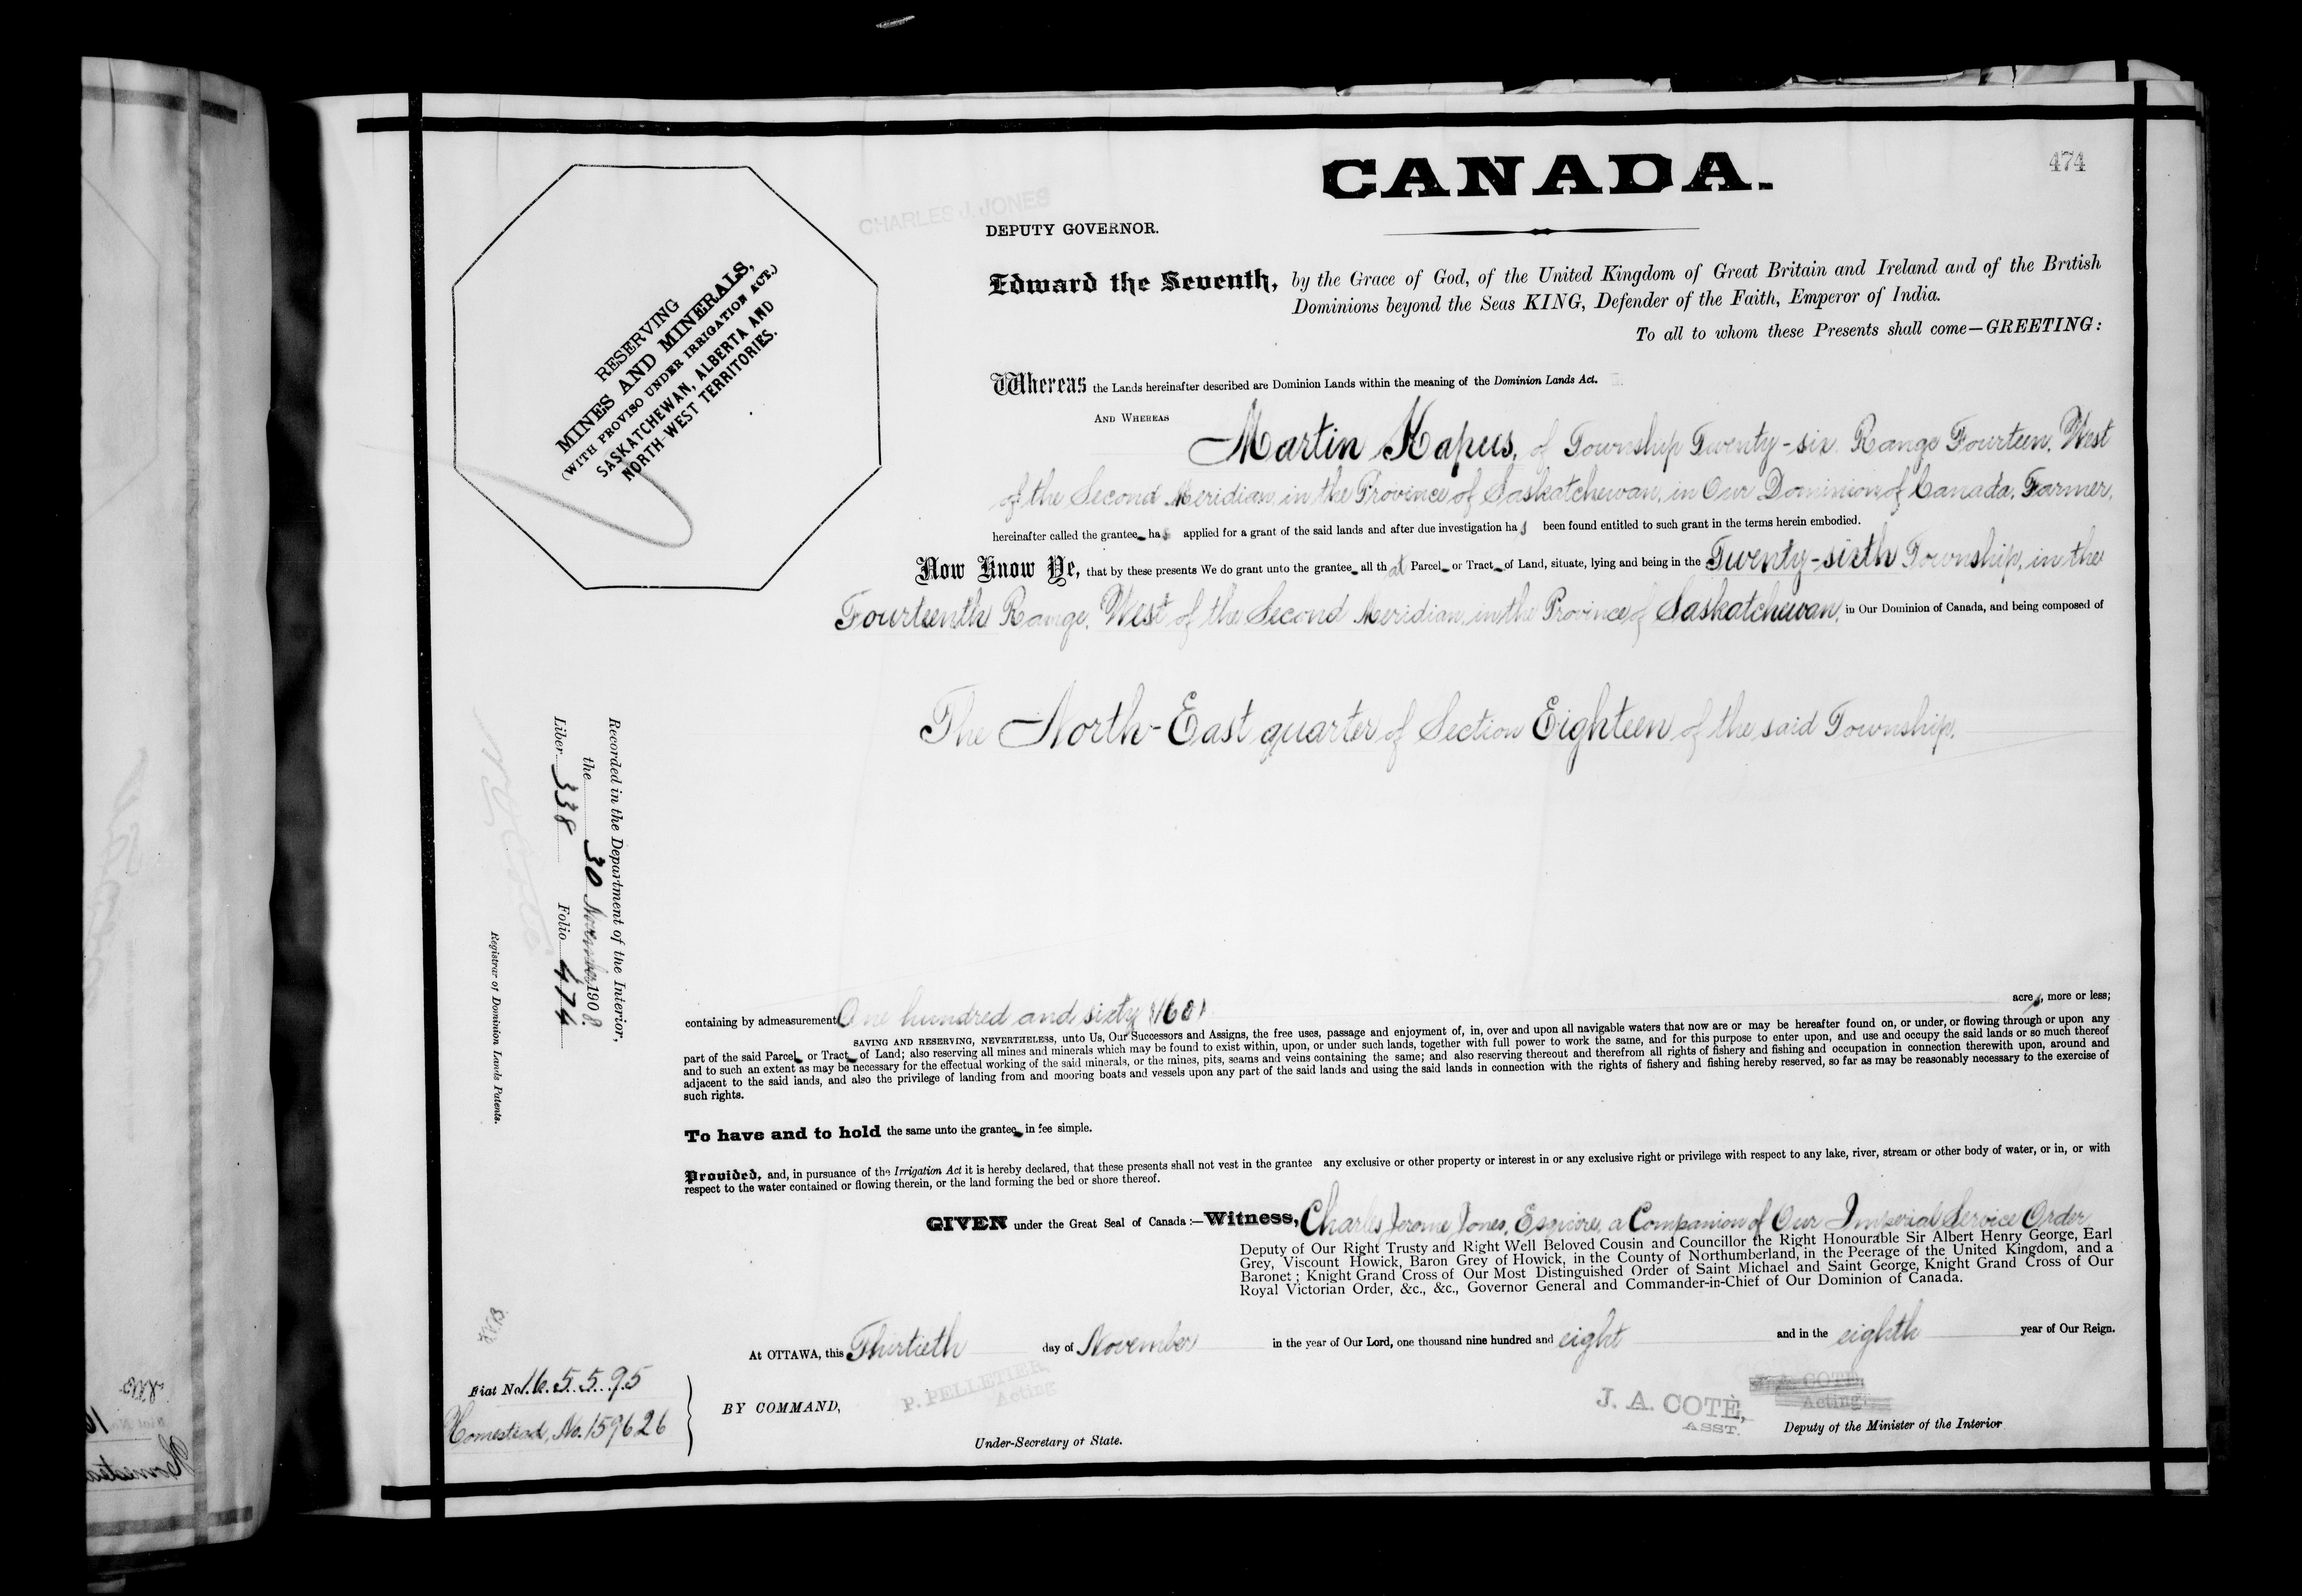 CANADA.
474
CHARLES J. JONES
DEPUTY GOVERNOR.
Edward the Seventh, by the Grace of God, of the United Kingdom of Great Britain and Ireland and of the British
Dominions beyond the Seas KING, Defender of the Faith, Emperor of India.
To all to whom these Presents shall come—GREETING:
RESERVING
MINES AND MINERALS,
(WITH PROVISO UNDER IRRIGATION ACT.)
SASKATCHEWAN, ALBERTA AND
NORTH-WEST TERRITORIES.
Whereas the Lands hereinafter described are Dominion Lands within the meaning of the Dominion Lands Act.
AND WHEREAS
Martin Kapus, of Township Twenty-six, Range Fourteen, West
of the Second Meridian, in the Province of Saskatchewan, in Our Dominion of Canada, Farmer,
hereinafter called the grantee has applied for a grant of the said lands and after due investigation has been found entitled to such grant in the terms herein embodied.
Now Know Ye, that by these presents We do grant unto the grantee all that Parcel or Tract of Land, situate, lying and being in the Twenty-sixth Township, in the
Fourteenth Range, West of the Second Meridian, in the Province of Saskatchewan, in Our Dominion of Canada, and being composed of
The North-East quarter of Section Eighteen of the said Township.
Recorded in the Department of the Interior,
the 30 November 1908.
Liber 338 Folio 474
Registrar of Dominion Lands Patents.
containing by admeasurement One hundred and sixty (160) acres, more or less;
SAVING AND RESERVING, NEVERTHELESS, unto Us, Our Successors and Assigns, the free uses, passage and enjoyment of, in, over and upon all navigable waters that now are or may be hereafter found on, or under, or flowing through or upon any
part of the said Parcel or Tract of Land; also reserving all mines and minerals which may be found to exist within, upon, or under such lands, together with full power to work the same, and for this purpose to enter upon, and use and occupy the said lands or so much thereof
and to such an extent as may be necessary for the effectual working of the said minerals, or the mines, pits, seams and veins containing the same; and also reserving thereout and therefrom all rights of fishery and fishing and occupation in connection therewith upon, around and
adjacent to the said lands, and also the privilege of landing from and mooring boats and vessels upon any part of the said lands and using the said lands in connection with the rights of fishery and fishing hereby reserved, so far as may be reasonably necessary to the exercise of
such rights.
To have and to hold the same unto the grantee in fee simple.
Provided, and, in pursuance of the Irrigation Act it is hereby declared, that these presents shall not vest in the grantee any exclusive or other property or interest in or any exclusive right or privilege with respect to any lake, river, stream or other body of water, or in, or with
respect to the water contained or flowing therein, or the land forming the bed or shore thereof.
GIVEN under the Great Seal of Canada:—Witness, Charles Jerome Jones, Esquire, a Companion of Our Imperial Service Order,
Deputy of Our Right Trusty and Right Well Beloved Cousin and Councillor the Right Honourable Sir Albert Henry George, Earl
Grey, Viscount Howick, Baron Grey of Howick, in the County of Northumberland, in the Peerage of the United Kingdom, and a
Baronet; Knight Grand Cross of Our Most Distinguished Order of Saint Michael and Saint George, Knight Grand Cross of Our
Royal Victorian Order, &c., &c., Governor General and Commander-in-Chief of Our Dominion of Canada.
At OTTAWA, this Thirtieth day of November in the year of Our Lord, one thousand nine hundred and eight and in the eighth year of Our Reign.
Fiat No. 165595
Homestead, No. 159626
BY COMMAND,
P. PELLETIER,
Acting
Under-Secretary of State.
J. A. COTÉ,
ASST.
J. A. COTÉ,
Acting
Deputy of the Minister of the Interior